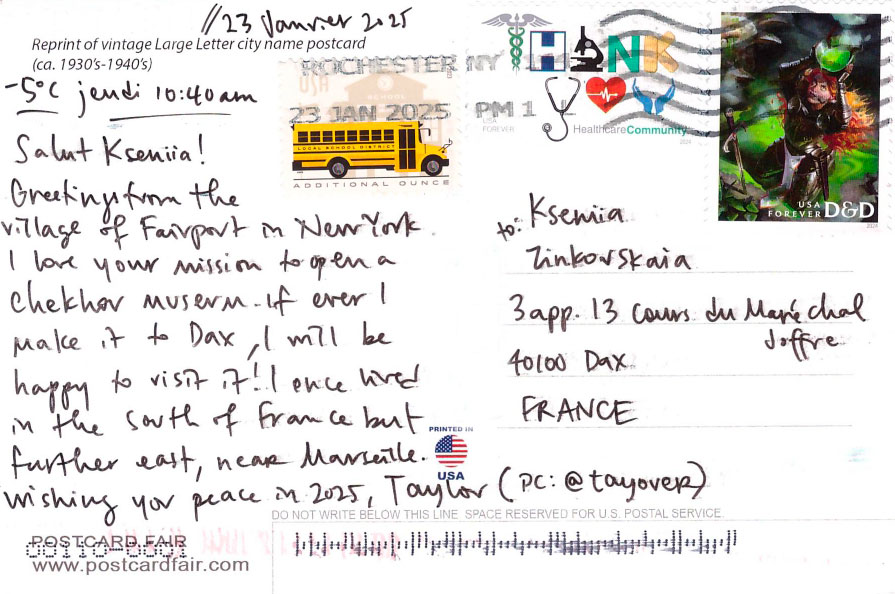 //23 Janvier 2025
Reprint of vintage Large Letter city name postcard
(ca. 1930's-1940's)
-5°C jeudi 10:40am
Salut Kseniia!
Greetings from the
village of Fairport in New York.
I love your mission to open a
Chekhov museum. If ever I
make it to Dax, I will be
happy to visit it! I once lived
in the south of France but
further east, near Marseille.
Wishing you peace in 2025, Taylor (PC: @tayover)
ROCHESTER NY
23 JAN 2025 PM 1
USA
SCHOOL
LOCAL SCHOOL DISTRICT
ADDITIONAL OUNCE
THANK
USA
FOREVER
HealthcareCommunity
2024
USA
FOREVER D&D
2024
to: Kseniia
Zinkovskaia
3 app. 13 Cours du Maréchal
Joffre
40100 Dax
FRANCE
PRINTED IN
USA
DO NOT WRITE BELOW THIS LINE. SPACE RESERVED FOR U.S. POSTAL SERVICE.
POSTCARD FAIR
00110-0001
www.postcardfair.com